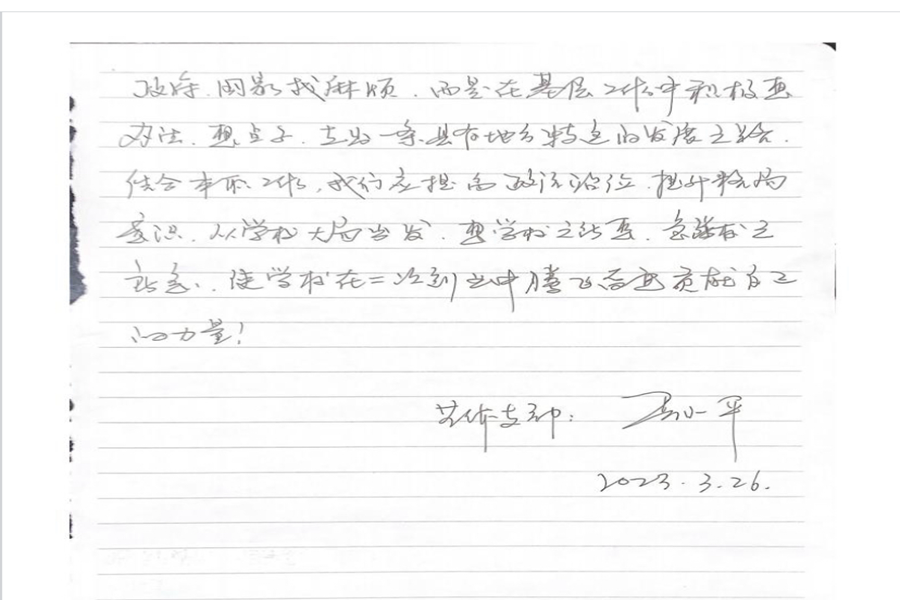 政府、国家找麻烦，而是在基层工作中积极想
办法、想点子，走出一条具有地方特色的发展之路。
结合本职工作，我们应提高政治站位，提升格局
意识，从学校大局出发，想学校之所想，急学校之
所急，使学校在二次创业中腾飞而贡献自己
的力量！
艺体支部：
2023.3.26.